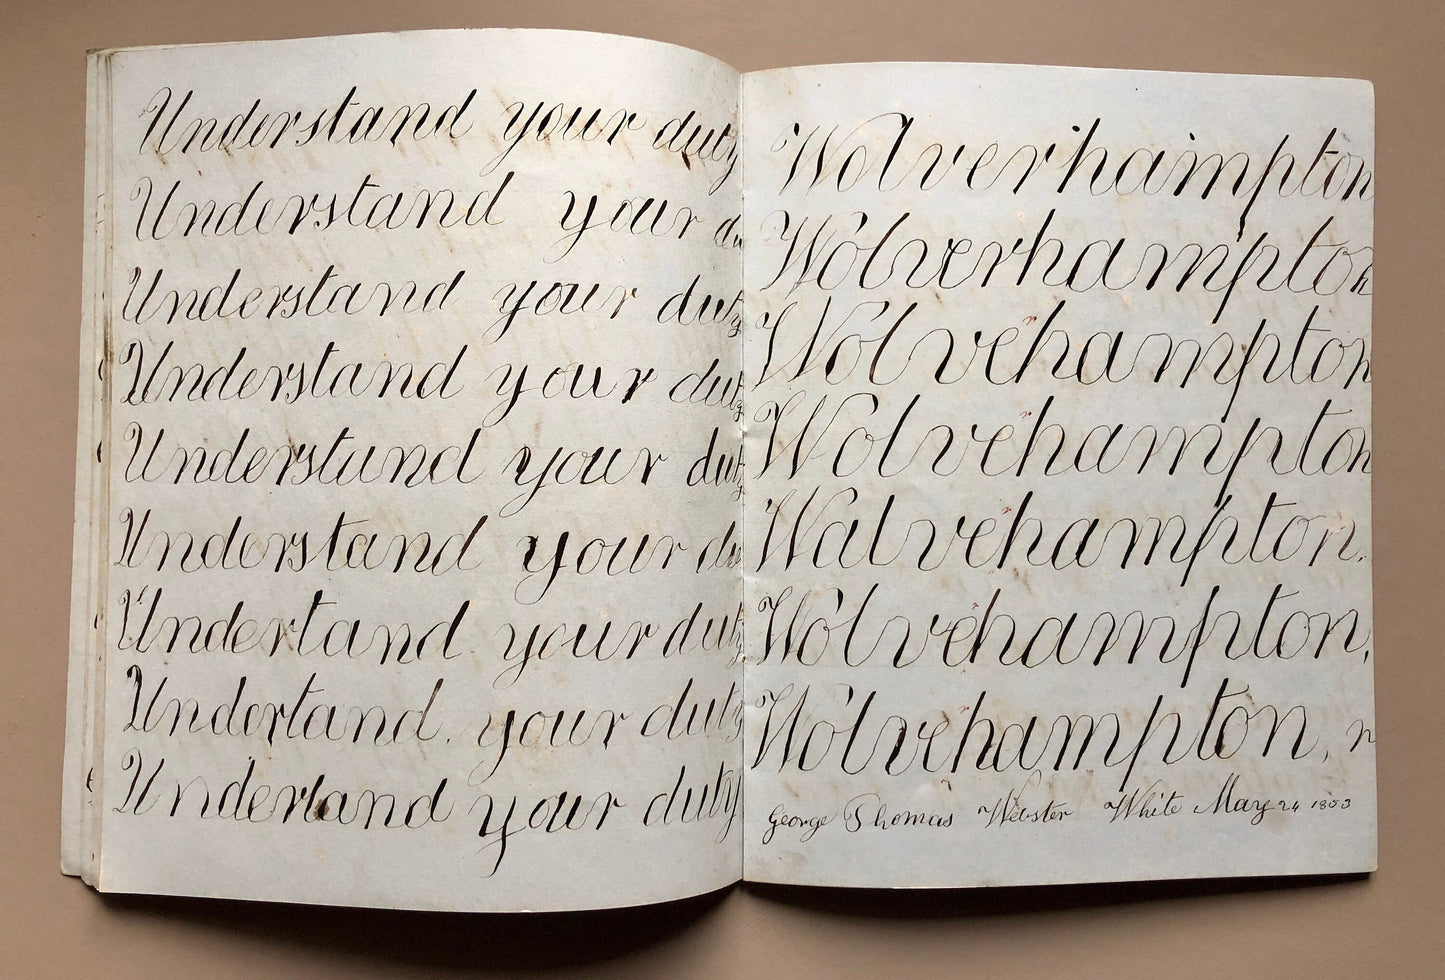 Understand your duty
Understand your du
Understand your duty
Understand your duty
Understand your duty
Understand your du
Undertand your duty
Undertand. your duty
Undertand your duty
Wolverhampton
Wolverhampton
Wolvehampton
Wolvehampton
Walvehampton.
Wolvehampton,
Wolvehampton, n
George Thomas Webster White May 24 1853